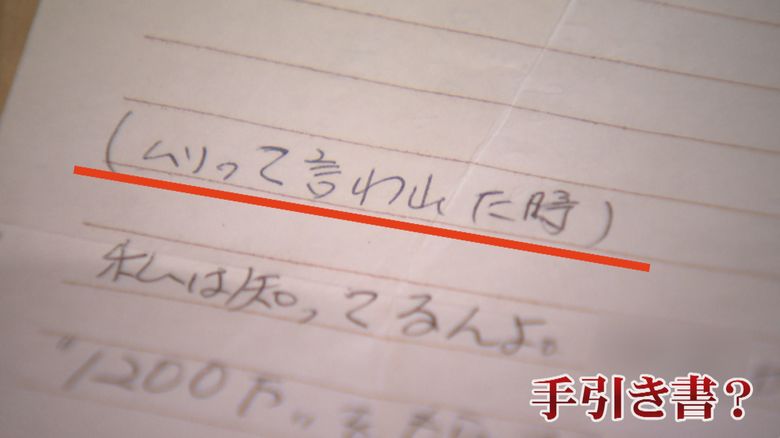 (ムリって言われた時)
私は知ってるんよ。
"1200万"
手引き書?